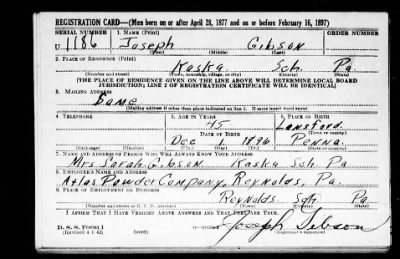 REGISTRATION CARD—(Men born on or after April 28, 1877 and on or before February 16, 1897)
SERIAL NUMBER 1. NAME (Print)
U 1186 Joseph Gibson
(First) (Middle) (Last)
2. PLACE OF RESIDENCE (Print)
Kaska Sch. Pa
(Number and street) (Town, township, village, or city) (County) (State)
THE PLACE OF RESIDENCE GIVEN ON THE LINE ABOVE WILL DETERMINE LOCAL BOARD
JURISDICTION; LINE 2 OF REGISTRATION CERTIFICATE WILL BE IDENTICAL
3. MAILING ADDRESS
Same
[Mailing address if other than place indicated on line 2. If same insert word same]
4. TELEPHONE 5. AGE IN YEARS 6. PLACE OF BIRTH
45 Lansford
DATE OF BIRTH (Town or county)
Dec 1 1896 Penna.
(Exchange) (Number) (Mo.) (Day) (Yr.) (State or country)
7. NAME AND ADDRESS OF PERSON WHO WILL ALWAYS KNOW YOUR ADDRESS
Mrs Sarah Gibson Kaska Sch. Pa.
8. EMPLOYER'S NAME AND ADDRESS
Atlas Powder Company, Reynolds, Pa.
9. PLACE OF EMPLOYMENT OR BUSINESS
Reynolds. Sch Pa
(Number and street or R. F. D. number) (Town) (County) (State)
I AFFIRM THAT I HAVE VERIFIED ABOVE ANSWERS AND THAT THEY ARE TRUE.
D. S. S. Form 1 Joseph Gibson
(Revised 4-1-42) (over) (Registrant's signature)